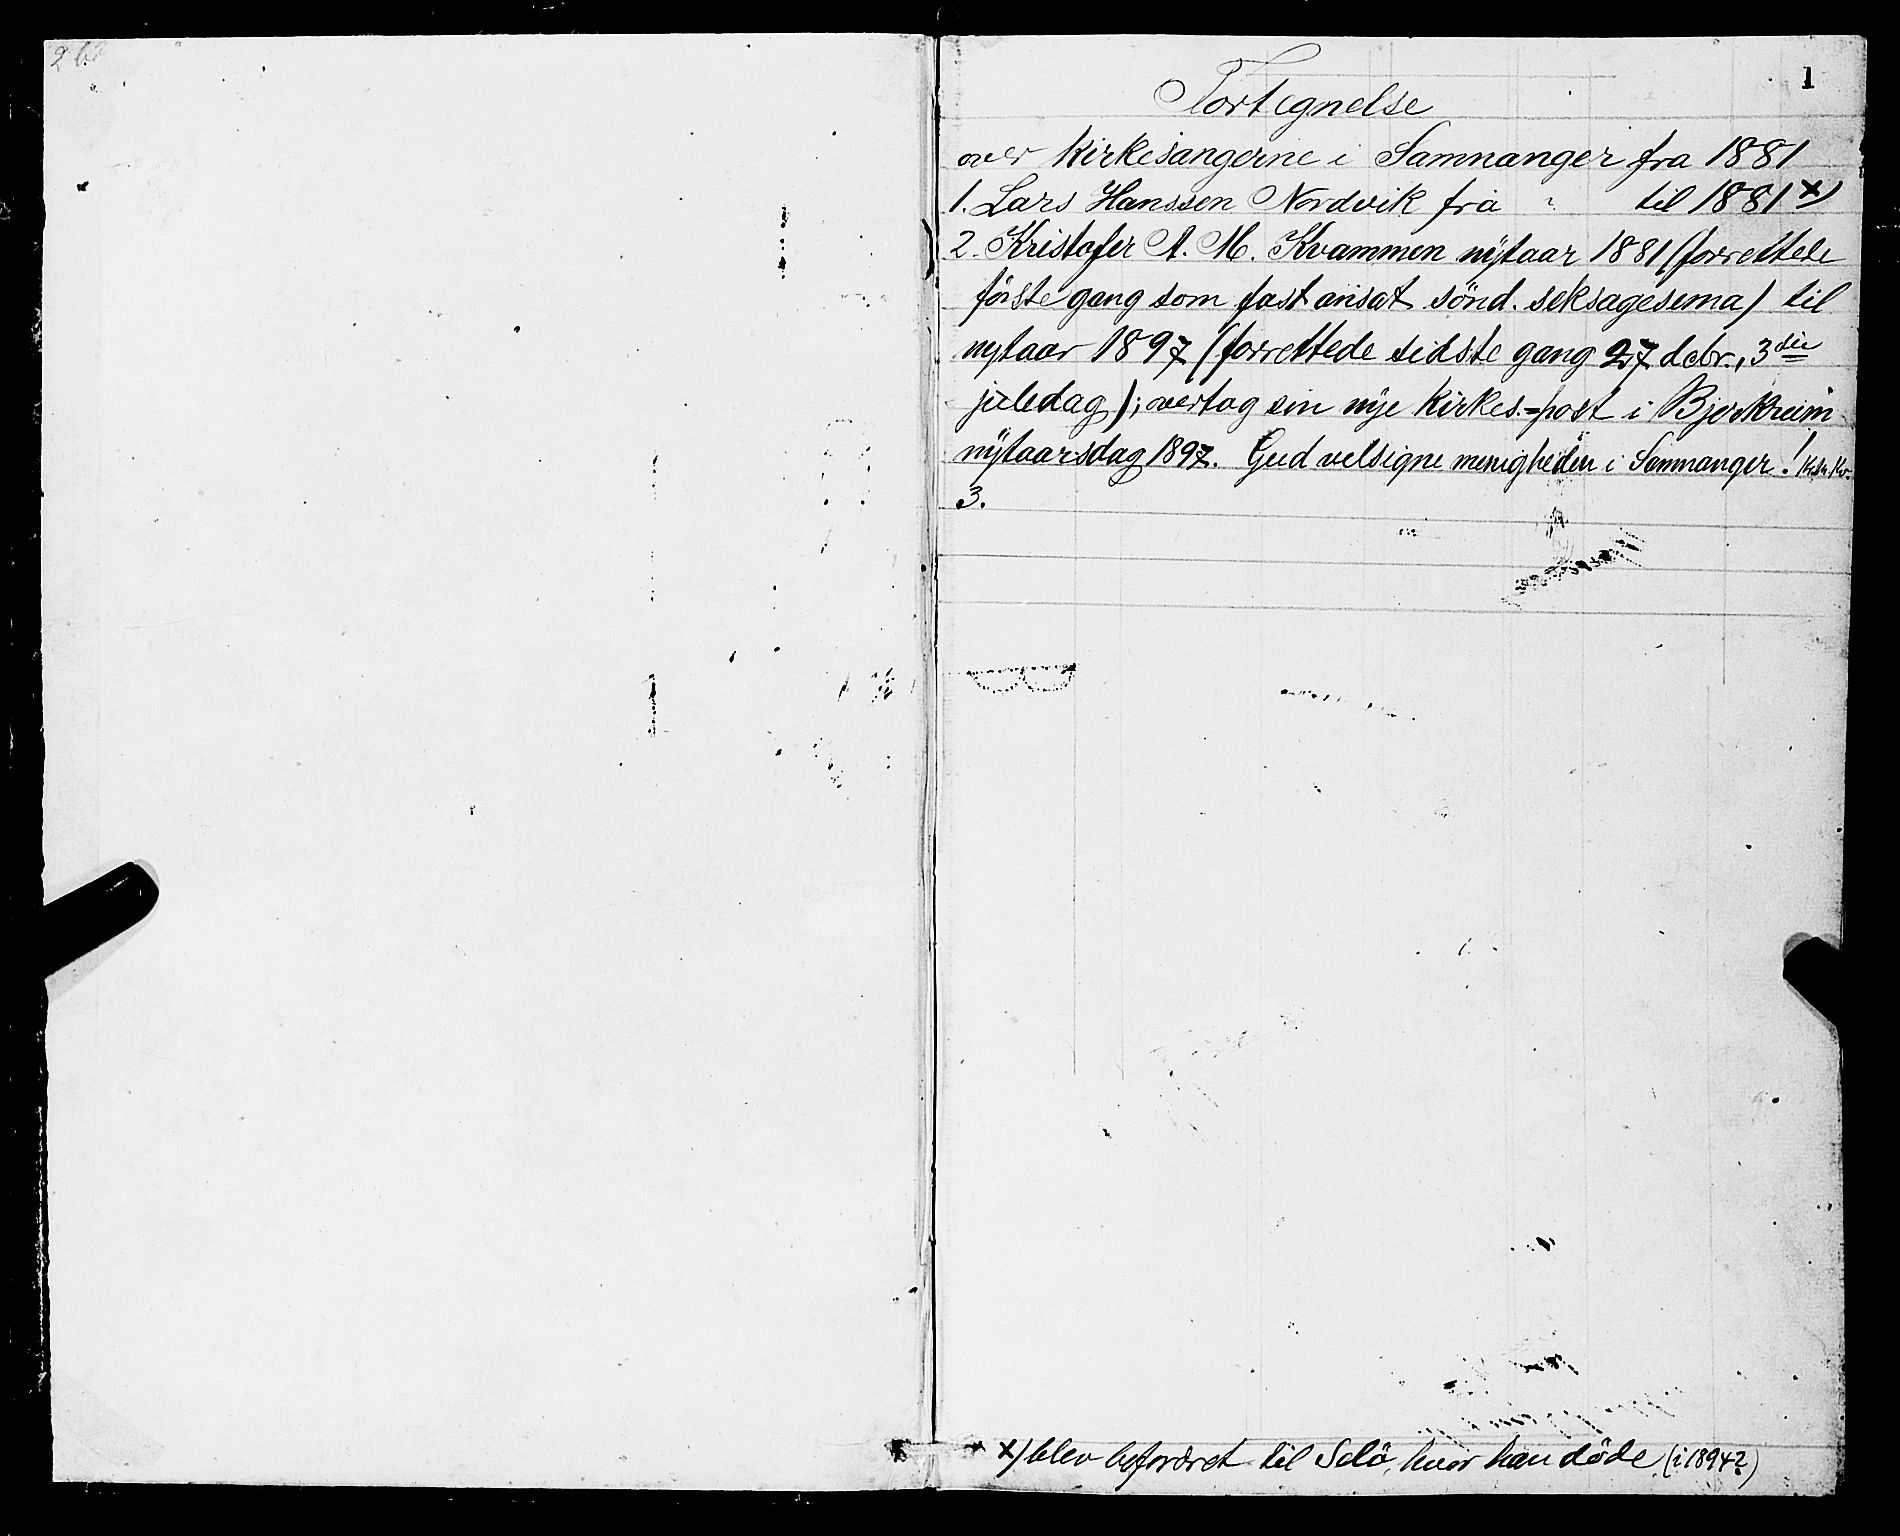 1
Fortegnelse
over Kirkesangerne i Samnanger fra 1881
1. Lars Hanssen Nordvik fra ? til 1881 x)
2. Kristofer A. M. Kvammen nytaar 1881 (forrettede
förste gang som fast ansat sönd. seksagesema) til
nytaar 1897 (forrettede sidste gang 27 debr., 3die
juledag); overtog sin nye Kirkes.=post i Bjerkreim
nytaarsdag 1897. Gud velsigne menigheden i Samnanger! Kr. Kv.
3.
x) blev befordret til Selö, hvor han döde (i 1894?)